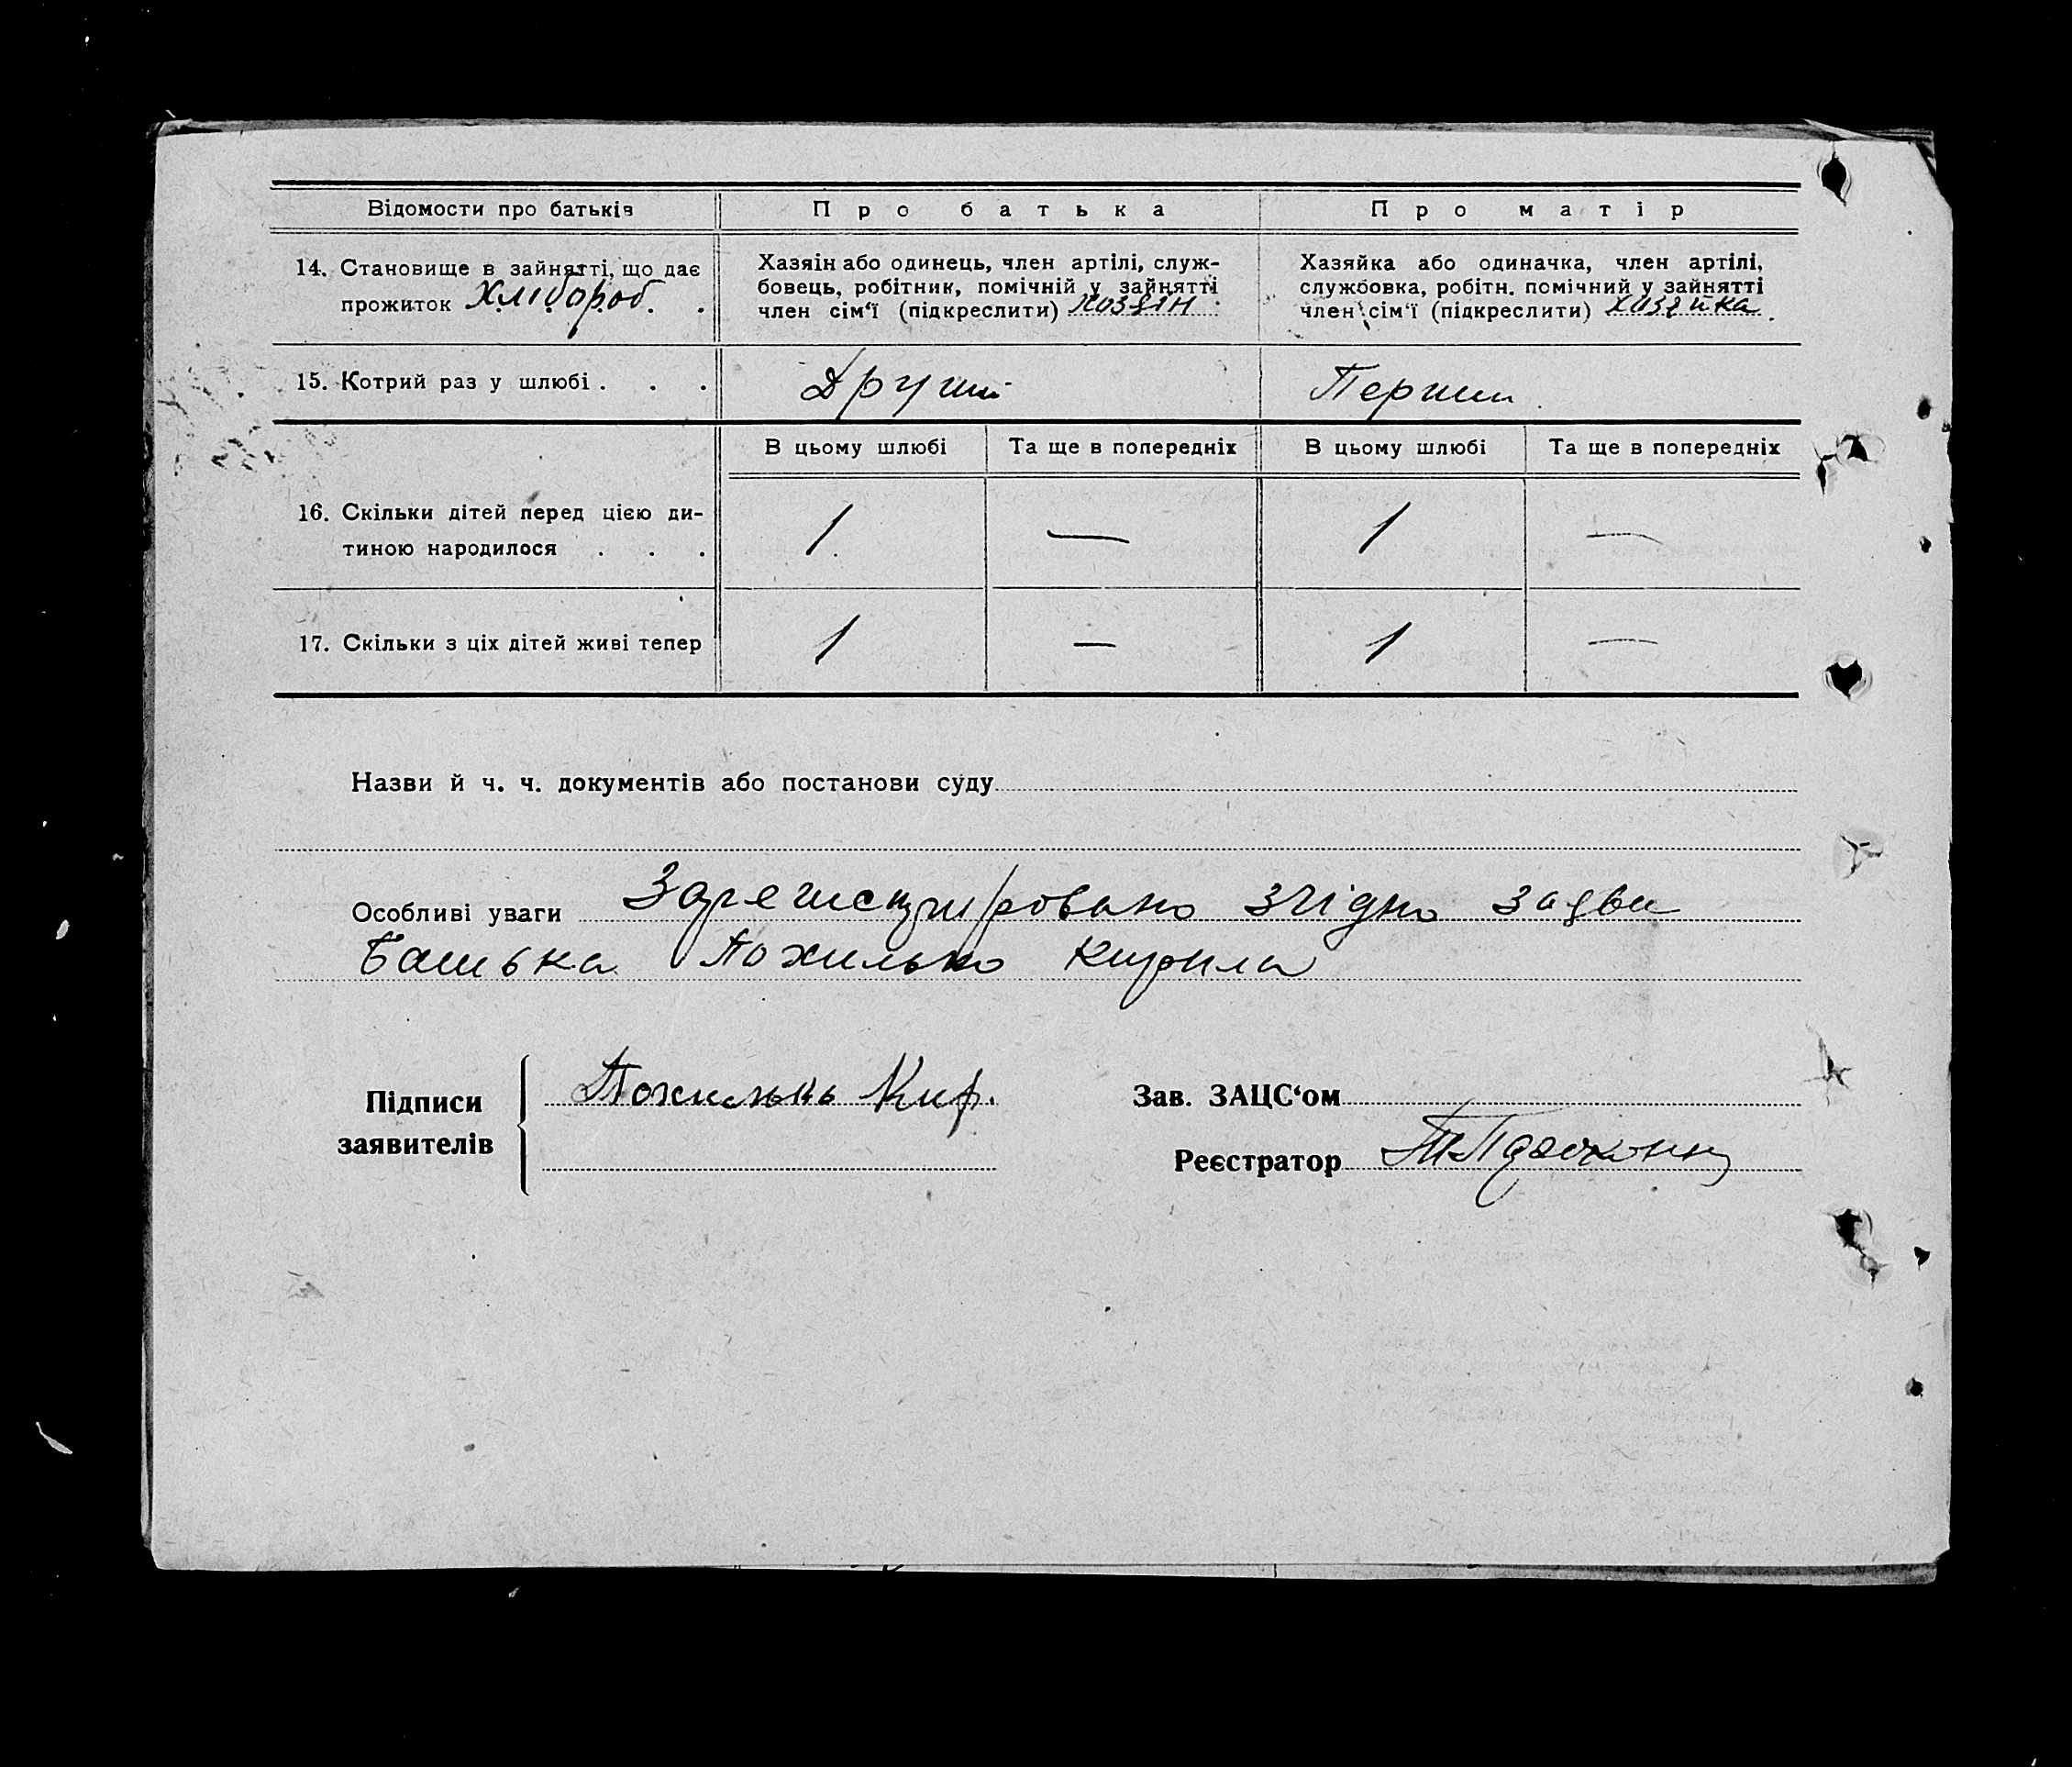 Відомости про батьків Про батька Про матір
14. Становище в зайнятті, що дає
прожиток Хлібороб. .
Хазяін або одинець, член артілі, служ-
бовець, робітник, помічній у зайнятті
член сім‘ї (підкреслити) хозяін
Хазяйка або одиначка, член артілі,
службовка, робітн. помічний у зайнятті
член сім‘ї (підкреслити) хозяйка.
15. Котрий раз у шлюбі . . . Другий Перший
В цьому шлюбі Та ще в попередніх В цьому шлюбі Та ще в попередніх
16. Скільки дітей перед цією ди-
тиною народилося . . . 1 — 1 —
17. Скільки з ціх дітей живі тепер 1 — 1 —
Назви й ч. ч. документів або постанови суду
Особливі уваги Зарегистрировано згідно заяви
Батька Похилько Кирила
Підписи
заявителів
Похилько Кир.
Зав. ЗАЦС‘ом
Реєстратор